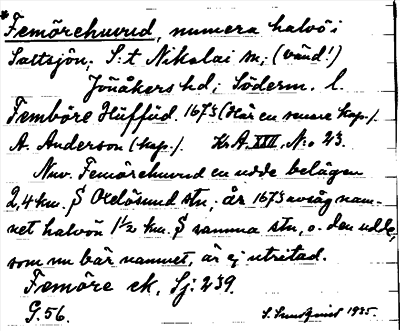 *Femörehuvud, numera halvö i
Saltsjön; S:t Nikolai sn; (vänd!)
Jönåkers hd; Söderm. l.
Femböre Hüffüd. 1673 (Här en senare kop.).
A. Anderson (kop.). KrA. XXII. N:o 23.
Nuv. Femörehuvud en udde belägen
2,4 km. S Oxelösund stn; år 1673 avsåg nam-
net halvön 1½ km. S samma stn, o. den udde,
som nu bär namnet, är ej utritad.
Femöre ek. Sj: 239.
G. 56. S. Sundqvist 1935.